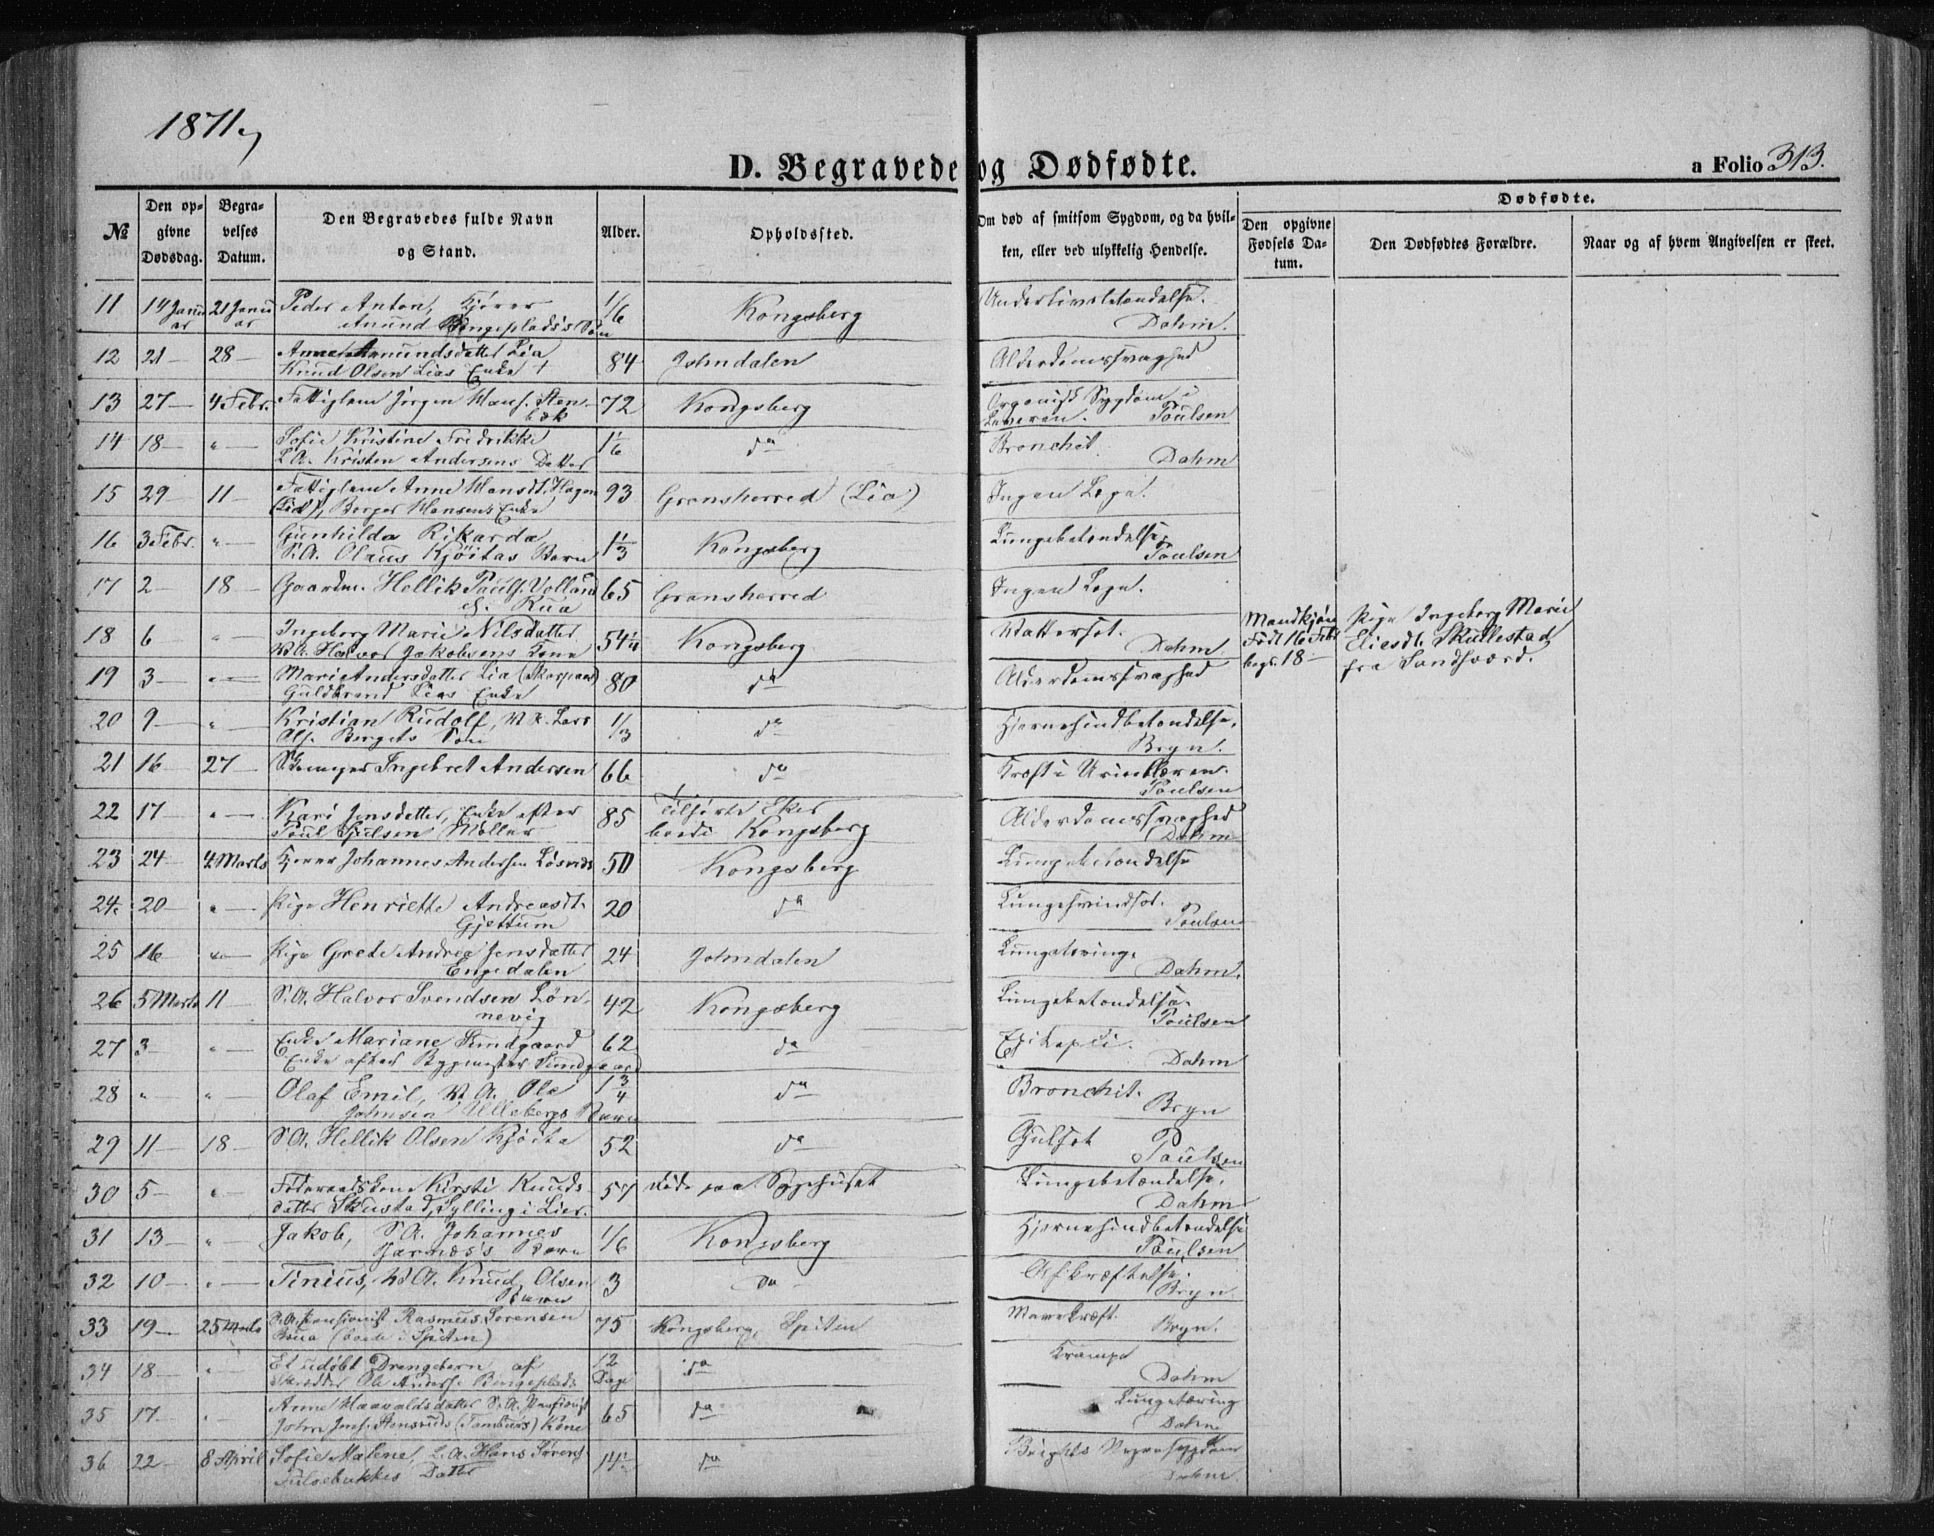 1871
D. Begravede og Dødfødte.
a Folio 313.
№
Den opgivne Dødsdag.
Begravelses Datum.
Den Begravedes fulde Navn og Stand.
Alder.
Opholdssted.
Om død af smitsom Sygdom, og da hvilken, eller ved ulykkelig Hendelse.
Dødfødte.
Den opgivne Fødsels Datum.
Den Dødfødtes Forældre.
Naar og af hvem Angivelsen er skeet.
11 14 Januar 21 Januar Peder Anton, Kjører 1/6 Kongsberg Underlivsbetændelse.
Anund Bingeplads's Søn Dahm.
12 21 — 28 — Anne Amundsdatter Lia 84 Johndalen Alderdomssvaghed
Knud Olsen Lias Enke +
13 27 — 4 Febr. Fattiglem Jørgen Hans. Stenbæk 72 Kongsberg Organisk Sygdom i
Leveren. Poulsen
14 18 — " — Sofie Kristine Fredrikke 1 1/6 da Bronchit.
S.A. Kristen Andersens Datter Dahm
15 29 — 11 — Fattiglem Anne Hansdt. Hagen 93 Gransherred (Lia) Ingen Læge.
(Lid), Borger Hansens Enke
16 3 Febr. " — Gunhilda Rikarda 1 1/3 Kongsberg Lungebetændelse.
S.A. Olaus Kjöitas Barn Poulsen
17 2 — 18 — Gaardm. Hellik Pauls. Volland 65 Gransherred Ingen Læge.
ell. Rua
18 6 — " — Ingeborg Marie Nilsdatter 54 1/4 Kongsberg Vattersot.
W.A. Halvor Jakobsens Kone Dahm.
Mandkjøn
Født 16 Febr
begr. 18 —
Pige Ingeborg Marie
Eliesdt. Skullestad
fra Sandsværd.
19 3 — " — Mari Andersdatter Lia 80 da Alderdomssvaghed
Guldbrand Lias Enke
20 9 — " Kristian Rudolf, W.A. Lars 1/3 da Hjernehindbetændelse.
Ols. Bergets Søn Bryn.
21 16 — 27 — Ingebret Andersen 66 da Kræft i Urinblæren.
Poulsen
22 17 — " — Kari Jensdatter, Enke efter 85 Tilhørte Eker Alderdomssvaghed
Poul Møller boede Kongsberg Dahm
23 24 — 4 Marts Kjører Johannes Andersen 50 Kongsberg Lungebetændelse
24. 20 — " — Pige Henriette Andreasdt. 20 da Lungesvindsot.
Gjettum Poulsen
25 16 — " — Pige Grete Andrea Jensdatter 24 Johndalen Lungetæring.
Engedalen Dahm.
26 5 Marts 11 — S.A. Halvor Svendsen Lønnevig 42 Kongsberg Lungebetændelse.
Poulsen
27 3 — " — Enke Mariane Sundgaard 62 da Epilepsi.
Enke efter Bygmester Sundgaard Dahm
28 " — " — Olaf Emil, W.A. Ole 1 3/4 da Bronchit.
Johnsen Ullebergs Barn Bryn
29 11 — 18 — S.A. Hellik Olsen Kjöita 52 da Gulsot
Poulsen
30 5 — " — Føderaadskone Kirsti Knuds- 57 Døde paa Sygehuset Lungebetændelse.
datter Skustad, Sylling i Lier. Dahm
31 13 — " — Jakob, S.A. Johannes 1/6 Kongsberg Hjernehindbetændelse
Jarnæs's Barn Poulsen
32 10 — " — Tinius, W.A. Knud Olsen 3 da Afkræftelse.
Barn Bryn.
33 19 — 25 Marts S.A. Pensionist Rasmus Sørensen 75 Kongsberg, Spiten Mavekræft.
(boede i Spiten) Bryn.
34 18 — " Et udøbt Drengebarn af 12 Dage da Krampe
Skrædder Ole Anders. Bingeplads Dahm
35 17 — " — Anne Haavaldsdatter S.A. Pensionist 65 da Lungetæring
John Jens. Stensruds (Tambours) Kone Dahm
36 22 — 8 April Sofie Malene, S.A. Hans Sørens. 14 1/2 da Brights Nyresygdom
Julsebakkes Datter Dahm